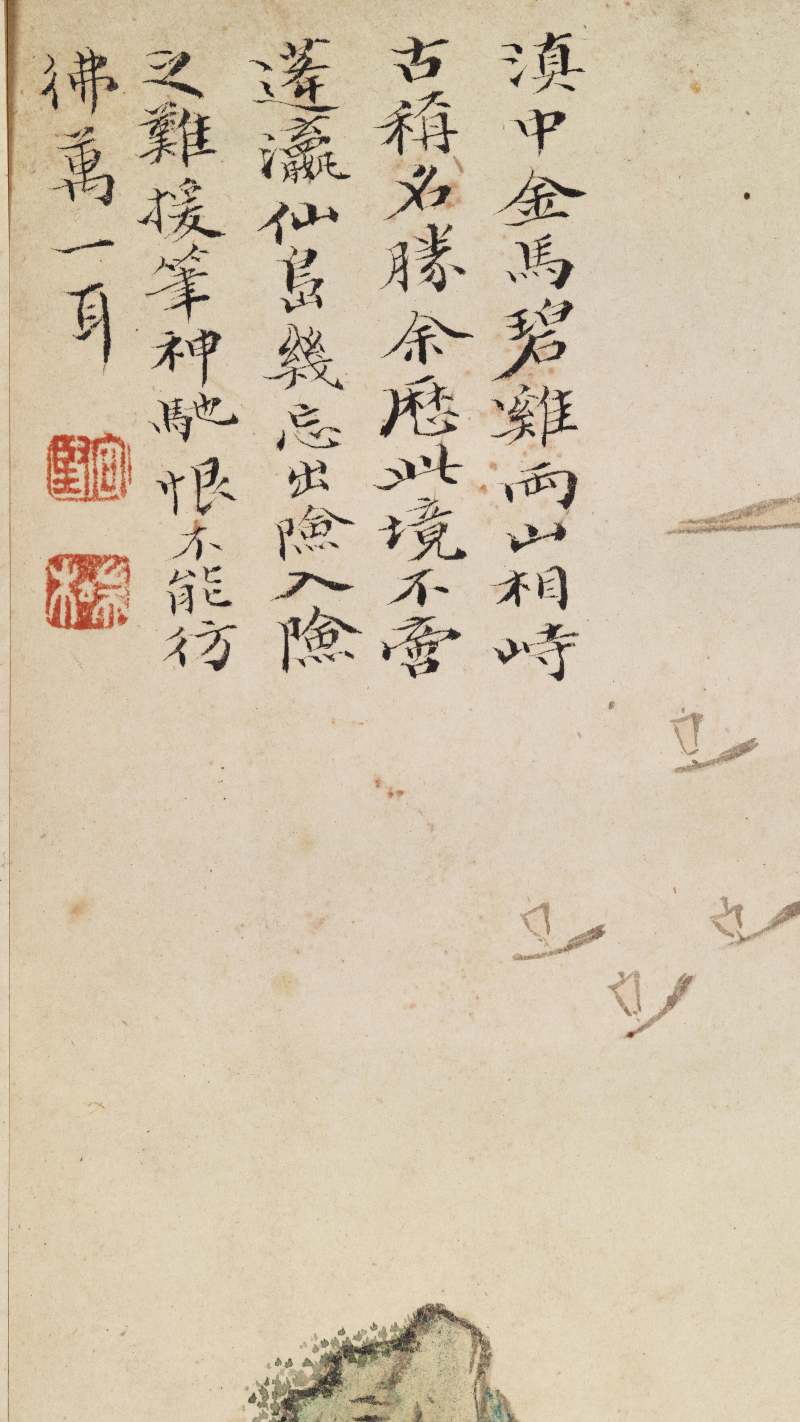 滇中金馬碧雞兩山相峙
古稱名勝余歷此境不啻
蓬瀛仙島幾忘出險入險
之難援筆神馳恨不能彷
彿萬一耳